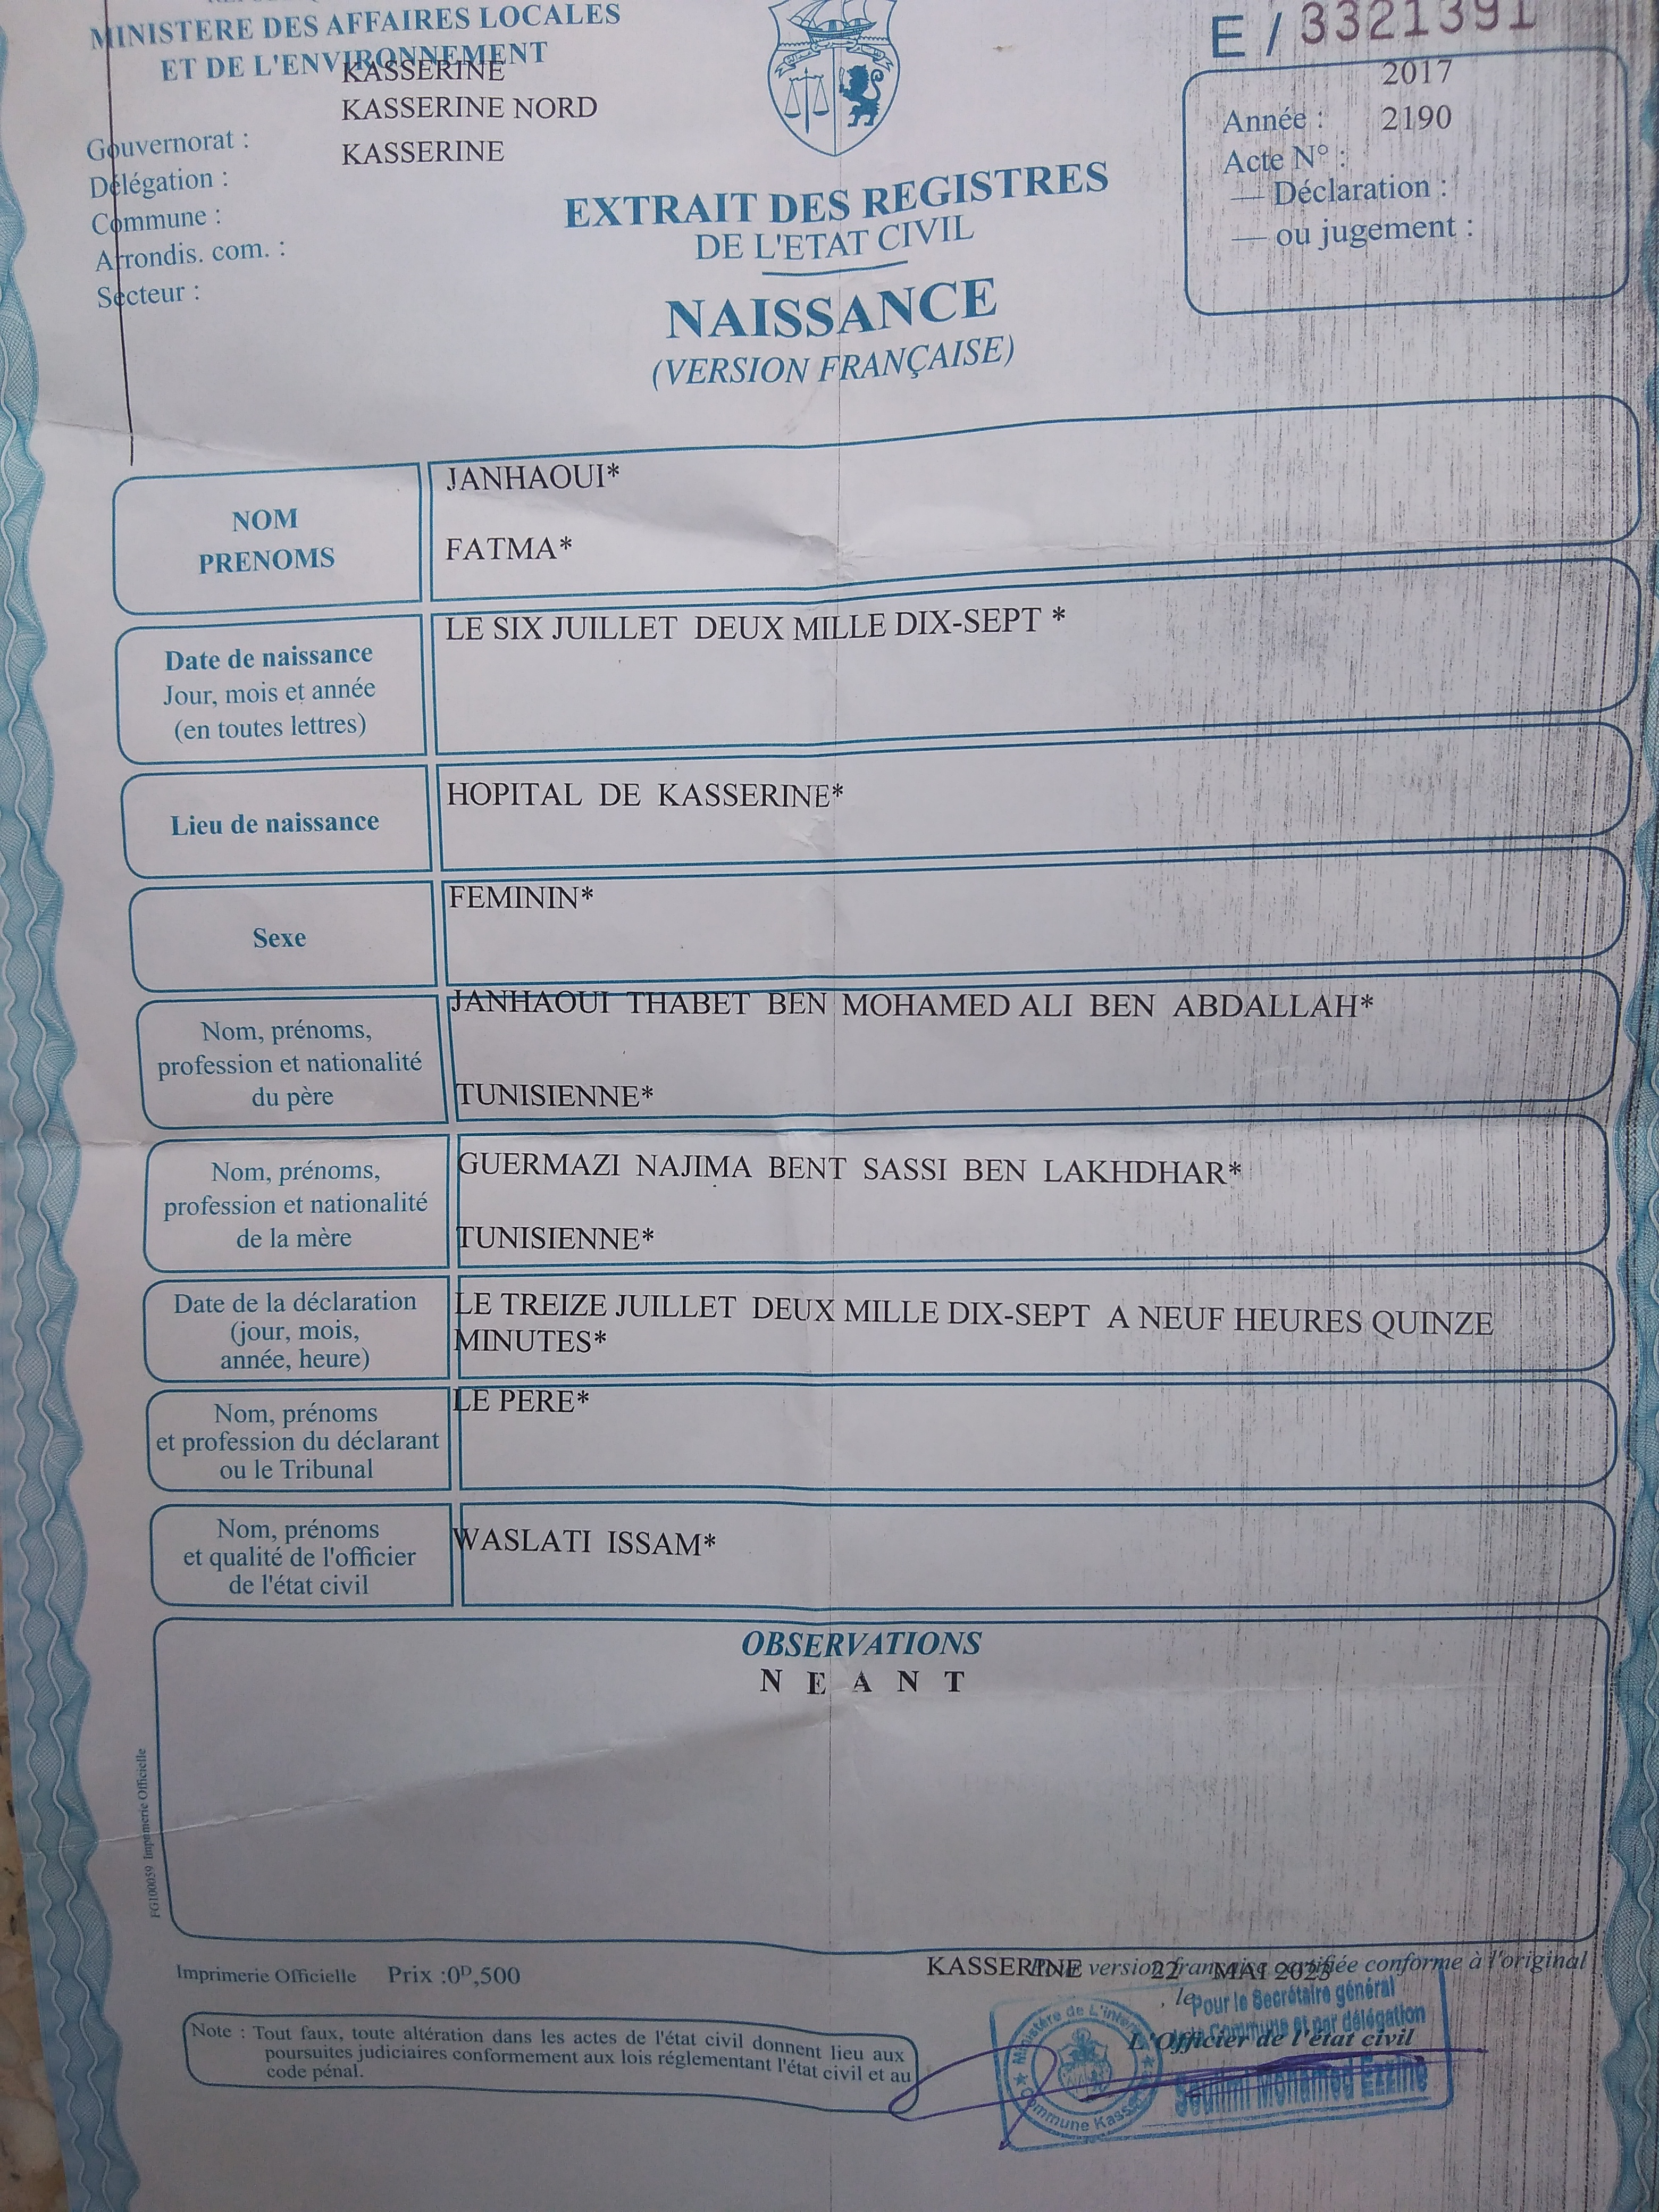 MINISTERE DES AFFAIRES LOCALES
ET DE L'ENVIRONNEMENT
KASSERINE
KASSERINE NORD
KASSERINE
Gouvernorat :
Délégation :
Commune :
Arrondis. com. :
Secteur :
E / 3321391
2017
Année :
2190
Acte N° :
— Déclaration :
— ou jugement :
EXTRAIT DES REGISTRES
DE L'ETAT CIVIL
NAISSANCE
(VERSION FRANÇAISE)
NOM
PRENOMS
JANHAOUI*
FATMA*
Date de naissance
Jour, mois et année
(en toutes lettres)
LE SIX JUILLET DEUX MILLE DIX-SEPT *
Lieu de naissance
HOPITAL DE KASSERINE*
Sexe
FEMININ*
Nom, prénoms,
profession et nationalité
du père
JANHAOUI THABET BEN MOHAMED ALI BEN ABDALLAH*
TUNISIENNE*
Nom, prénoms,
profession et nationalité
de la mère
GUERMAZI NAJIMA BENT SASSI BEN LAKHDHAR*
TUNISIENNE*
Date de la déclaration
(jour, mois,
année, heure)
LE TREIZE JUILLET DEUX MILLE DIX-SEPT A NEUF HEURES QUINZE
MINUTES*
Nom, prénoms
et profession du déclarant
ou le Tribunal
LE PERE*
Nom, prénoms
et qualité de l'officier
de l'état civil
WASLATI ISSAM*
OBSERVATIONS
N E A N T
FG100059 Imprimerie Officielle
Imprimerie Officielle Prix :0ᴰ,500
KASSERINE 22 MAI 2023
version française certifiée conforme à l'original
, le
Pour le Secrétaire général
Commune et par délégation
L'Officier de l'état civil
Mohamed Ezzine
Ministère de L'inter
Commune Kass
Note : Tout faux, toute altération dans les actes de l'état civil donnent lieu aux
poursuites judiciaires conformement aux lois réglementant l'état civil et au
code pénal.